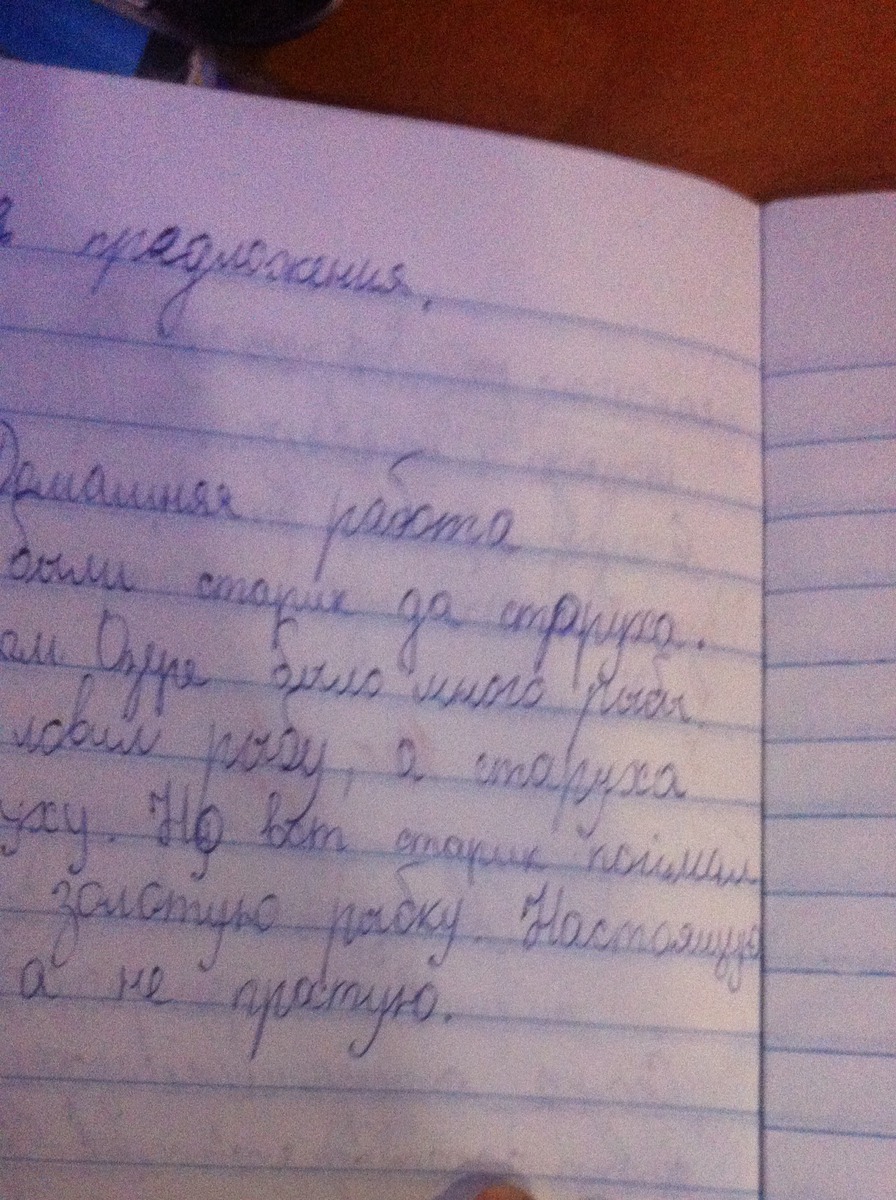 предложения.
Домашняя работа
были старик да старуха.
ом Озере было много рыбы
ловил рыбу, а старуха
уху. Но вот старик поймал
золотую рыбку. Настоящую
а не простую.